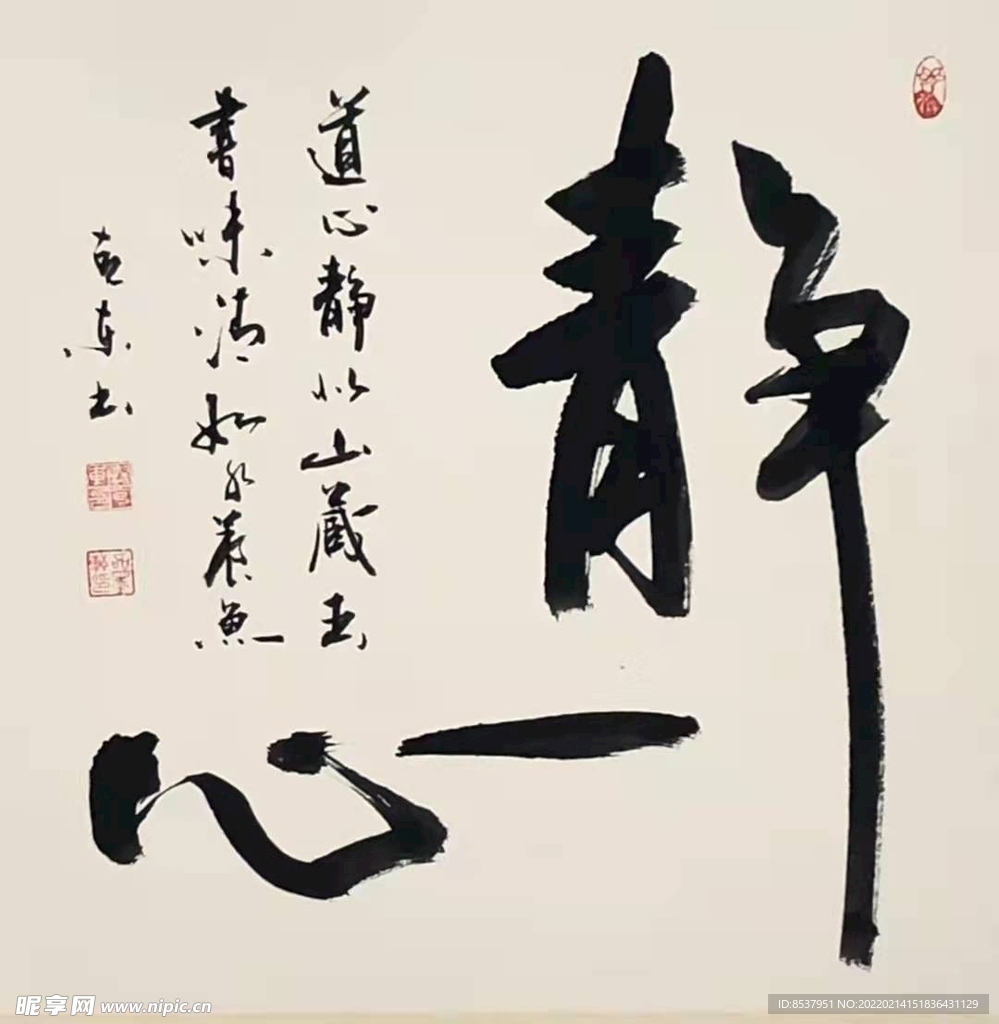 静一心
道心静似山藏玉
書味清如水養魚
东书
昵享网 www.nipic.cn
ID:8537951 NO:20220214151836431129